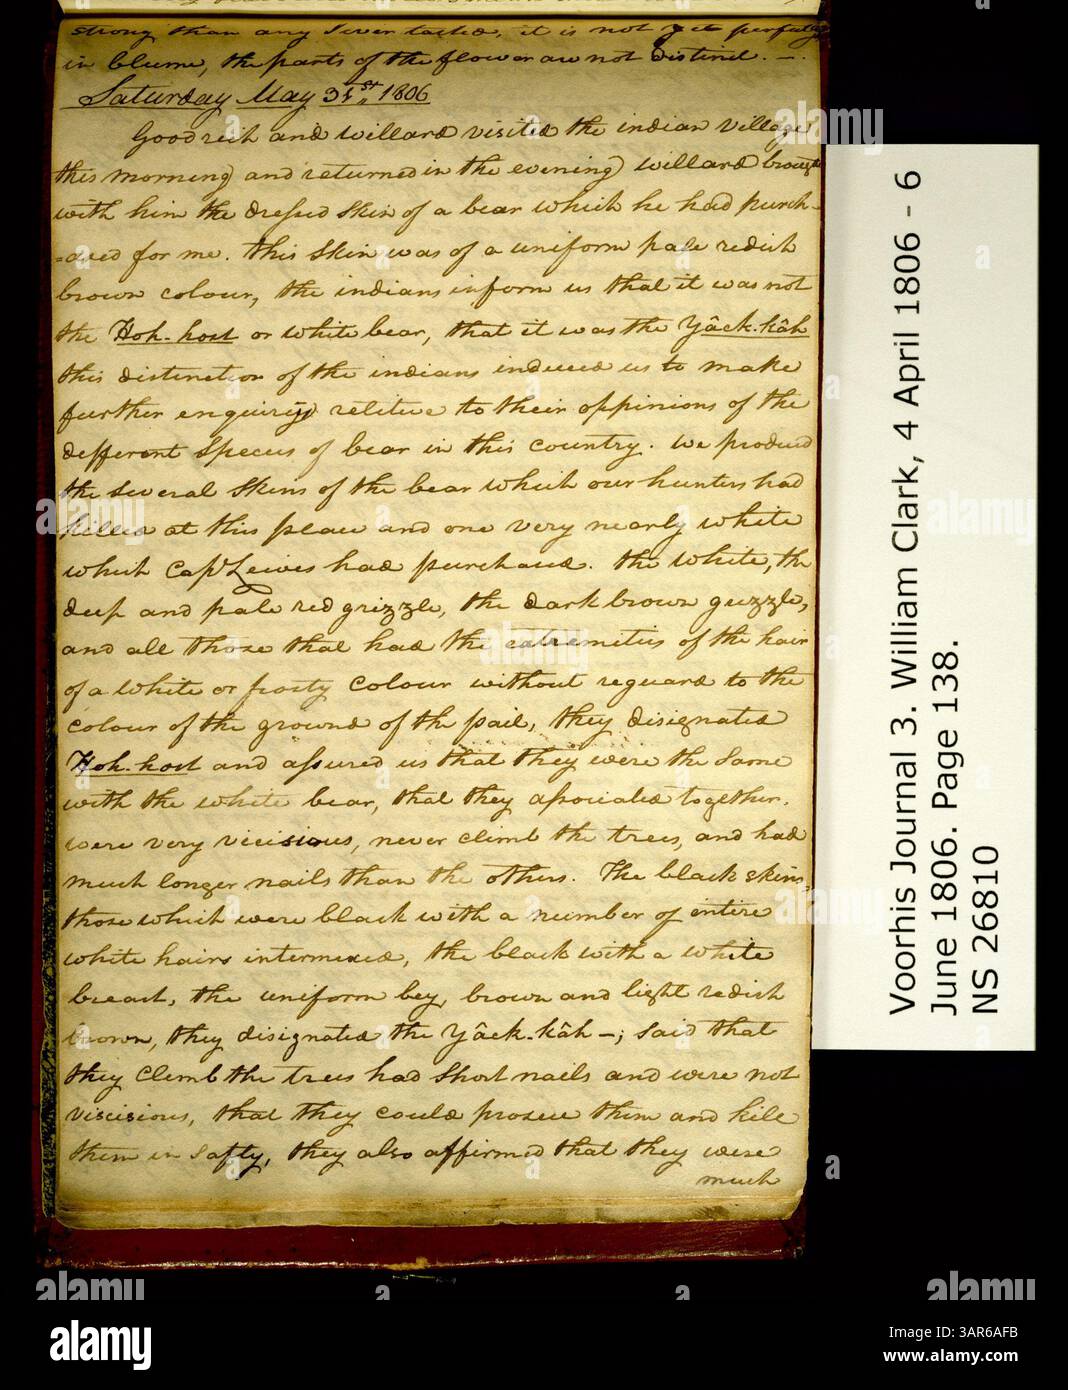 strong than any I ever tasted, it is not yet perfectly
in blume, the parts of the flower are not distinct. —.
Saturday May 31st, 1806
Goodrich and willard visited the indian village
this morning and returned in the evening willard brought
with him the dressed Skin of a bear which he had purch-
-ased for me. this Skin was of a uniform pale redish
brown colour, the indians inform us that it was not
the Hoh-host or white bear, that it was the Yâck-kâh
this distinction of the indians induced us to make
further enquiry relitive to their oppinions of the
defferent Species of bear in this country. we produced
the several Skins of the bear which our hunters had
killed at this place and one very nearly white
which Capt Lewis had purchased. the white, the
deep and pale red grizzle, the dark brown grizzle,
and all those that had the extremities of the hair
of a white or frosty Colour without reguard to the
colour of the ground of the poil, they disignated
Hoh-host and assured us that they were the Same
with the white bear, that they associated together.
were very vicisious, never climb the trees, and had
much longer nails than the others. The black skins,
those which were black with a number of intire
white hairs intermixed, the black with a white
breast, the uniform bey, brown and light redish
brown, they disignated the Yâck-kâh —; Said that
they climb the trees had Short nails and were not
viscisious, that they could prosue them and kill
them in Safty, they also affirmed that they were
much
Voorhis Journal 3. William Clark, 4 April 1806 - 6
June 1806. Page 138.
NS 26810
alamy
Image ID: 3AR6AFB
www.alamy.com